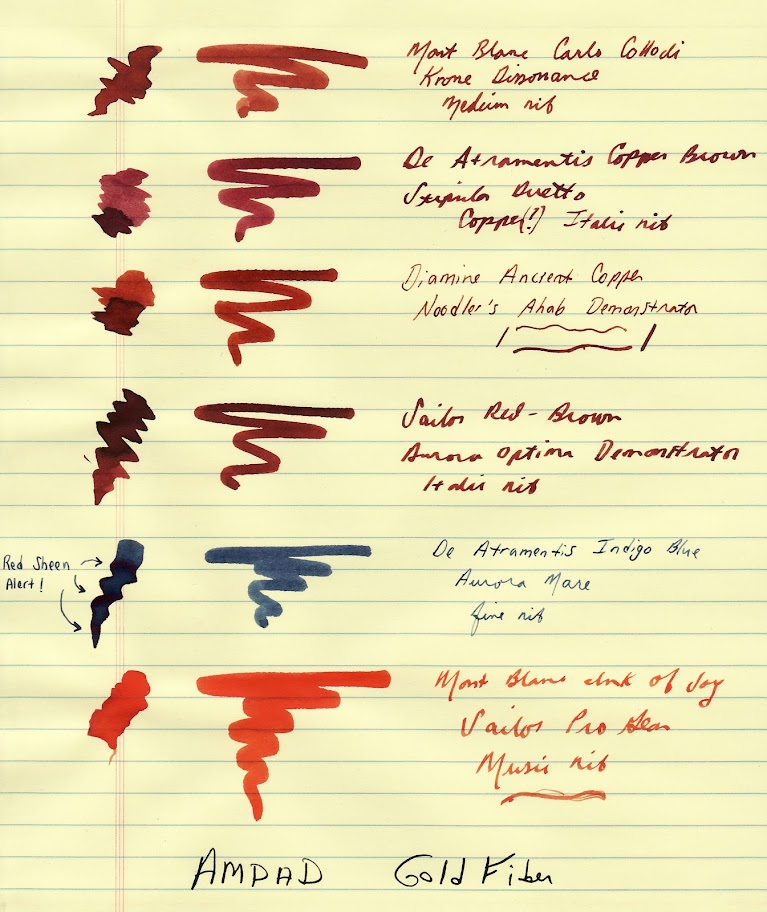 Mont Blanc Carlo Collodi
Krone Dissonance
Medium nib
De Atramentis Copper Brown
Stipula Duetto
Copper(!) Italic nib
Diamine Ancient Copper
Noodler's Ahab Demonstrator
Sailor Red-Brown
Aurora Optima Demonstrator
Italic nib
Red Sheen
Alert!
De Atramentis Indigo Blue
Aurora Mare
fine nib
Mont Blanc Ink of Joy
Sailor Pro Gear
Music nib
AMPAD Gold Fiber